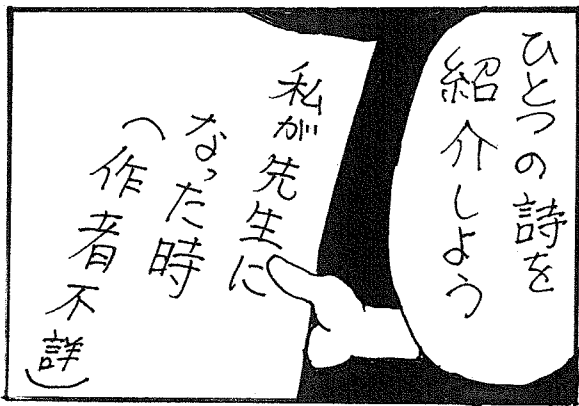 ひとつの詩を
紹介しよう
私が先生に
なった時
（作者不詳）